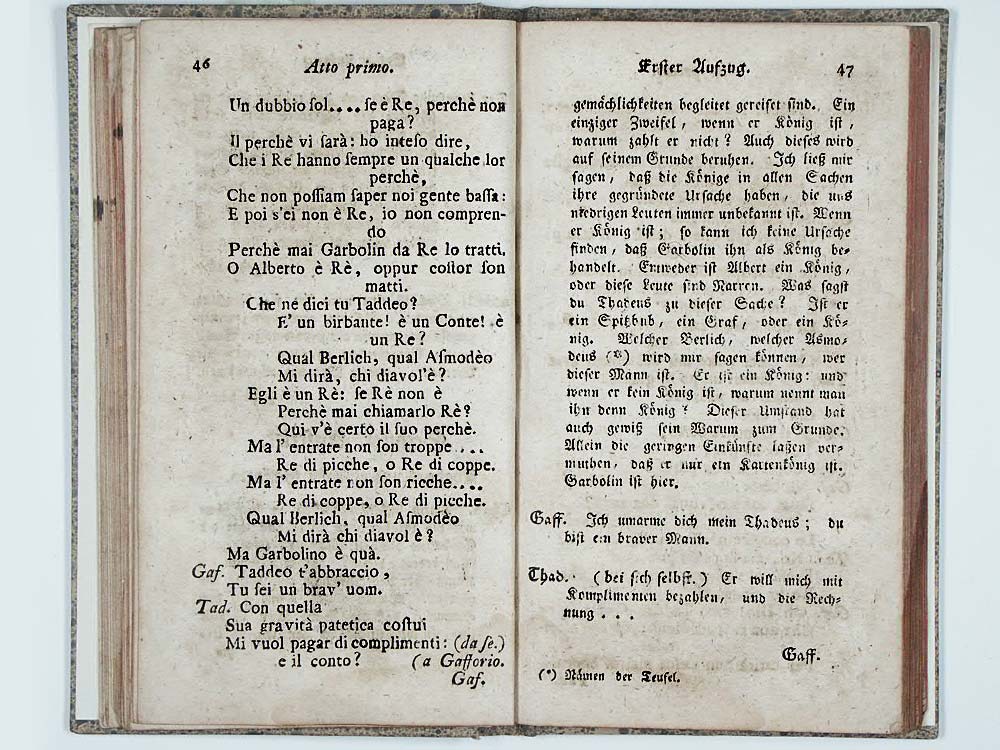 46 Atto primo.
Un dubbio ſol.... ſe è Re, perchè non
paga?
Il perchè vi ſarà: ho inteſo dire,
Che i Re hanno ſempre un qualche lor
perchè,
Che non poſſiam ſaper noi gente baſſa:
E poi s'ei non è Re, io non compren-
do
Perchè mai Garbolin da Re lo tratti.
O Alberto è Rè, oppur coſtor ſon
matti.
Che ne dici tu Taddeo?
E' un birbante! è un Conte! è
un Re?
Qual Berlich, qual Aſmodèo
Mi dirà, chi diavol'è?
Egli è un Rè: ſe Rè non è
Perchè mai chiamarlo Rè?
Qui v'è certo il ſuo perchè.
Ma l' entrate non ſon troppe ...
Re di picche, o Re di coppe.
Ma l' entrate non ſon ricche....
Re di coppe, o Re di picche.
Qual Berlich, qual Aſmodèo
Mi dirà chi diavol è?
Ma Garbolino è quà.
Gaf. Taddeo t'abbraccio,
Tu ſei un brav' uom.
Tad. Con quella
Sua gravità patetica coſtui
Mi vuol pagar di complimenti: (da ſe.)
e il conto? (a Gafforio.
Gaf.
Erſter Aufzug. 47
gemächlichkeiten begleitet gereiſet ſind. Ein
einziger Zweifel, wenn er König iſt,
warum zahlt er nicht? Auch dieſes wird
auf ſeinem Grunde beruhen. Ich ließ mir
ſagen, daß die Könige in allen Sachen
ihre gegründete Urſache haben, die uns
niedrigen Leuten immer unbekannt iſt. Wenn
er König iſt; ſo kann ich keine Urſache
finden, daß Garbolin ihn als König be-
handelt. Entweder iſt Albert ein König,
oder dieſe Leute ſind Narren. Was ſagſt
du Thadeus zu dieſer Sache? Iſt er
ein Spitzbub, ein Graf, oder ein Kö-
nig. Welcher Berlich, welcher Asmo-
deus (*) wird mir ſagen können, wer
dieſer Mann iſt. Er iſt ein König: und
wenn er kein König iſt, warum nennt man
ihn denn König? Dieſer Umſtand hat
auch gewiß ſein Warum zum Grunde.
Allein die geringen Einkünfte laßen ver-
muthen, daß er nur ein Kartenkönig iſt.
Garbolin iſt hier.
Gaff. Ich umarme dich mein Thadeus; du
biſt ein braver Mann.
Thad. (bei ſich ſelbſt.) Er will mich mit
Komplimenten bezahlen, und die Rech-
nung . . .
Gaff.
(*) Námen der Teufel.